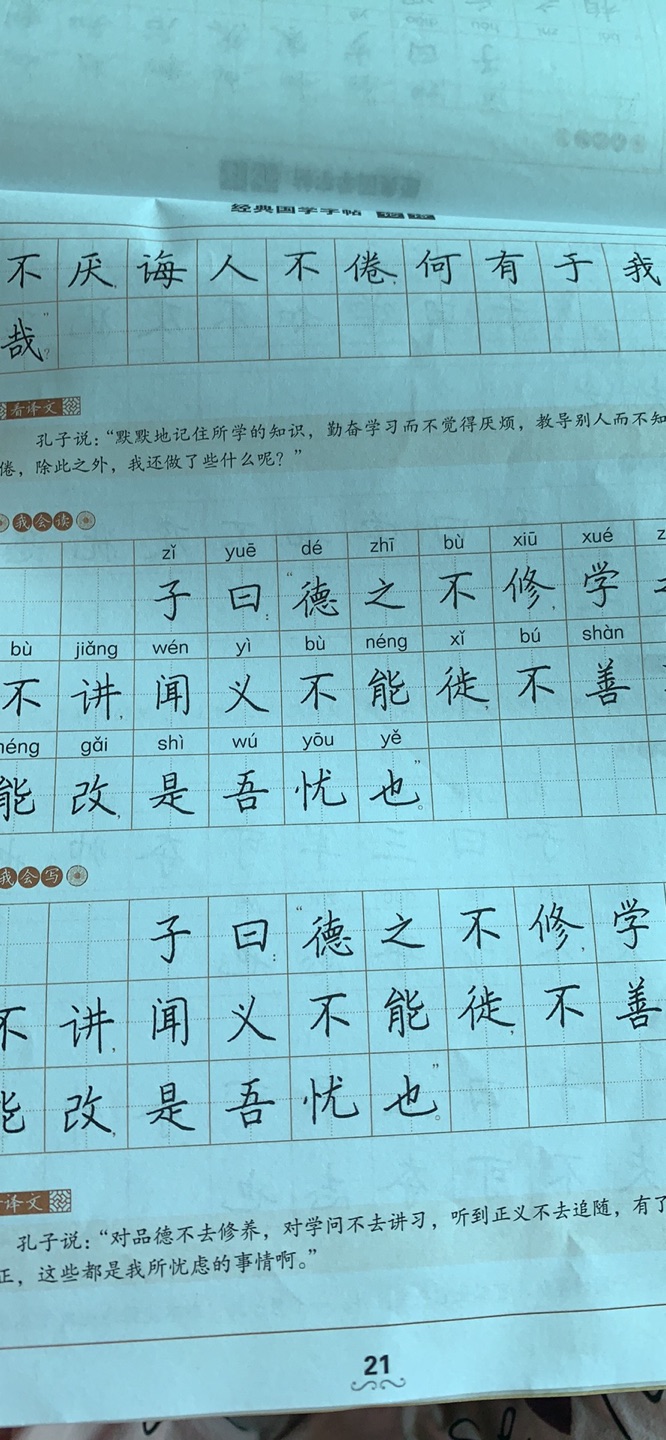 经典国学字帖
不厌，诲人不倦，何有于我
哉”？
看译文
孔子说：“默默地记住所学的知识，勤奋学习而不觉得厌烦，教导别人而不知
倦，除此之外，我还做了些什么呢？”
我会读
zǐ yuē dé zhī bù xiū xué
子曰：“德之不修，学
bù jiǎng wén yì bù néng xǐ bú shàn
不讲，闻义不能徙，不善
néng gǎi shì wú yōu yě
能改，是吾忧也”。
我会写
子曰：“德之不修，学
不讲，闻义不能徙，不善
能改，是吾忧也”。
译文
孔子说：“对品德不去修养，对学问不去讲习，听到正义不去追随，有了
正，这些都是我所忧虑的事情啊。”
21